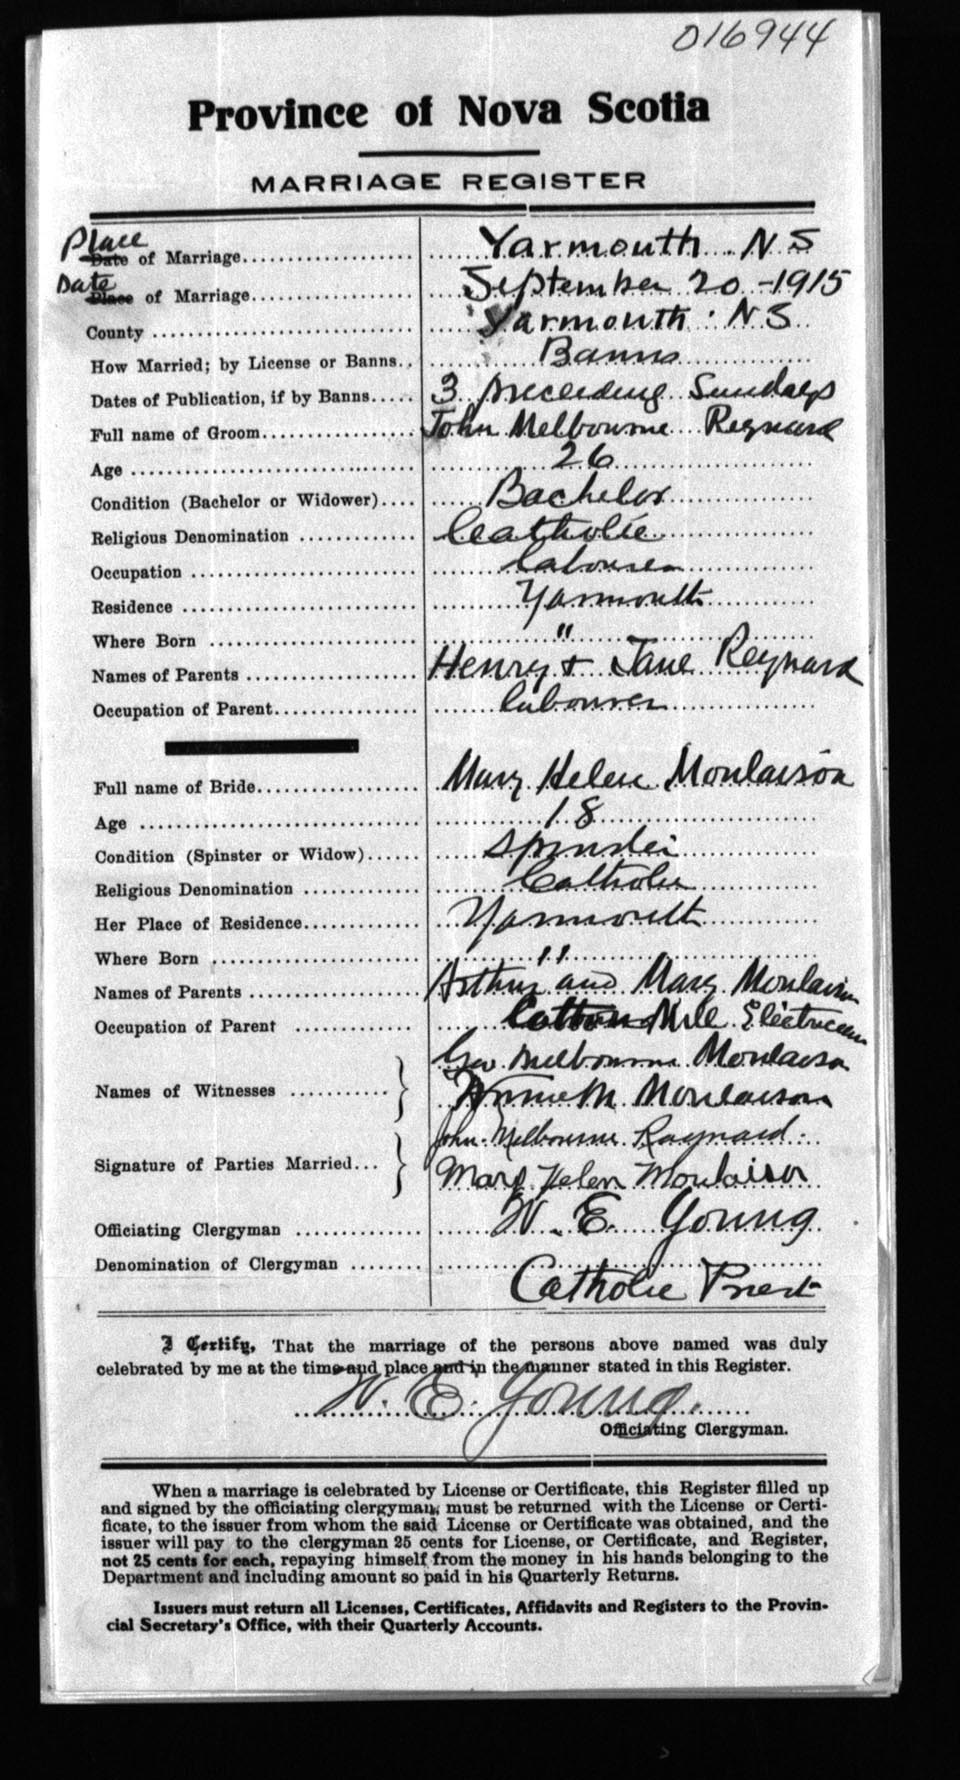 016944
Province of Nova Scotia
MARRIAGE REGISTER
Place
Date of Marriage Yarmouth N.S
Date
Place of Marriage September 20-1915
County Yarmouth. N S
How Married; by License or Banns.. Banns
Dates of Publication, if by Banns 3 preceeding Sundays
Full name of Groom John Melbourne Reynard
Age 26
Condition (Bachelor or Widower) Bachelor
Religious Denomination Catholic
Occupation Labourer
Residence Yarmouth
Where Born "
Names of Parents Henry + Jane Reynard
Occupation of Parent labourer
Full name of Bride Mary Helen Moulaison
Age 18
Condition (Spinster or Widow) Spinster
Religious Denomination Catholic
Her Place of Residence Yarmouth
Where Born "
Names of Parents Arthur and Mary Moulaison
Occupation of Parent Cotton Mill Electrician
Geo Melbourne Moulaison
Names of Witnesses Moulaison
John Melbourne Raynard.
Signature of Parties Married... Mary Helen Moulaison
Officiating Clergyman W. E. Young
Denomination of Clergyman Catholic Priest
I Certify, That the marriage of the persons above named was duly
celebrated by me at the time and place and in the manner stated in this Register.
W. E. Young.
Officiating Clergyman.
When a marriage is celebrated by License or Certificate, this Register filled up
and signed by the officiating clergyman, must be returned with the License or Certi-
ficate, to the issuer from whom the said License or Certificate was obtained, and the
issuer will pay to the clergyman 25 cents for License, or Certificate, and Register,
not 25 cents for each, repaying himself from the money in his hands belonging to the
Department and including amount so paid in his Quarterly Returns.
Issuers must return all Licenses, Certificates, Affidavits and Registers to the Provin-
cial Secretary's Office, with their Quarterly Accounts.